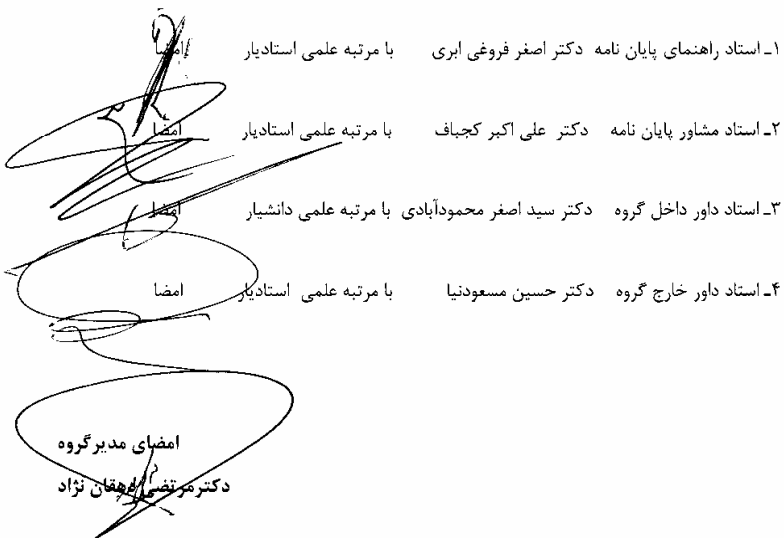 ۱ـ استاد راهنمای پایان نامه دکتر اصغر فروغی ابری با مرتبه علمی استادیار امضا
۲ـ استاد مشاور پایان نامه دکتر علی اکبر کجباف با مرتبه علمی استادیار امضا
۳ـ استاد داور داخل گروه دکتر سید اصغر محمودآبادی با مرتبه علمی دانشیار امضا
۴ـ استاد داور خارج گروه دکتر حسین مسعودنیا با مرتبه علمی استادیار امضا
امضای مدیرگروه
دکترمرتضی دهقان نژاد